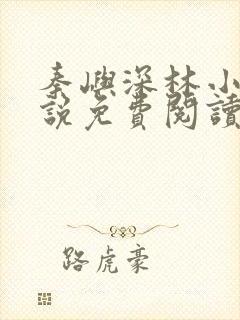 秦嶼深林小
說免費閱讀
路虎豪